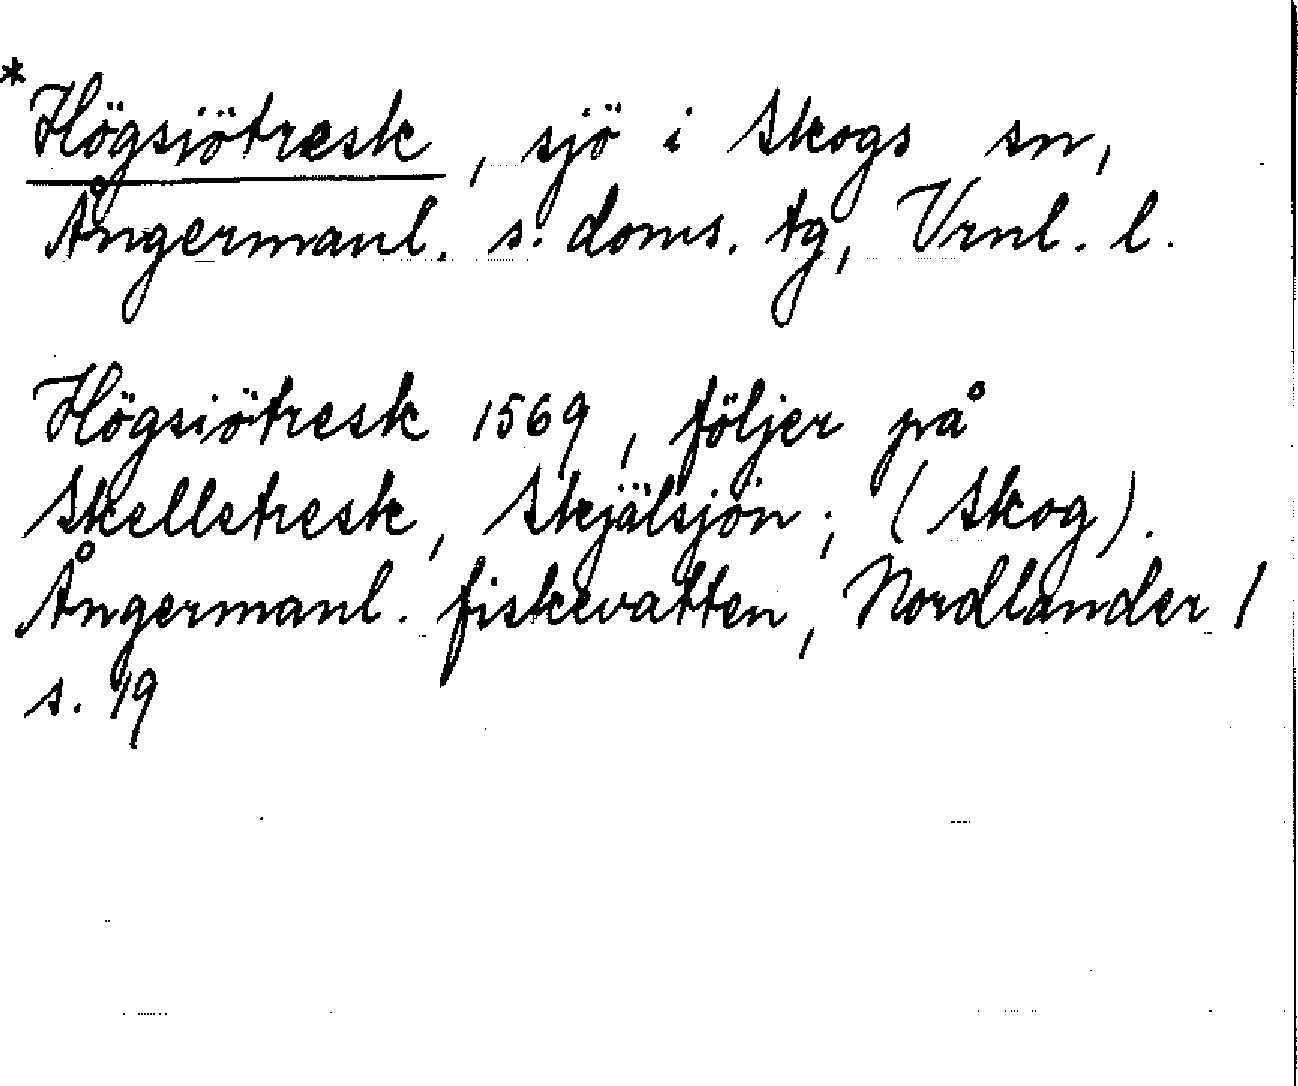 *Högsjötræsk, sjö i Skogs sn,
Ångermanl. s. doms. tg, Vrnl. l.
Högsiötresk 1569, följer på
Skelletresk, Skjälsjön; (Skog).
Ångermanl. fiskevatten, Nordlander 1
s. 19